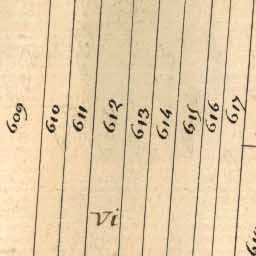 609
610
611
612
613
614
615
616
617
Vi